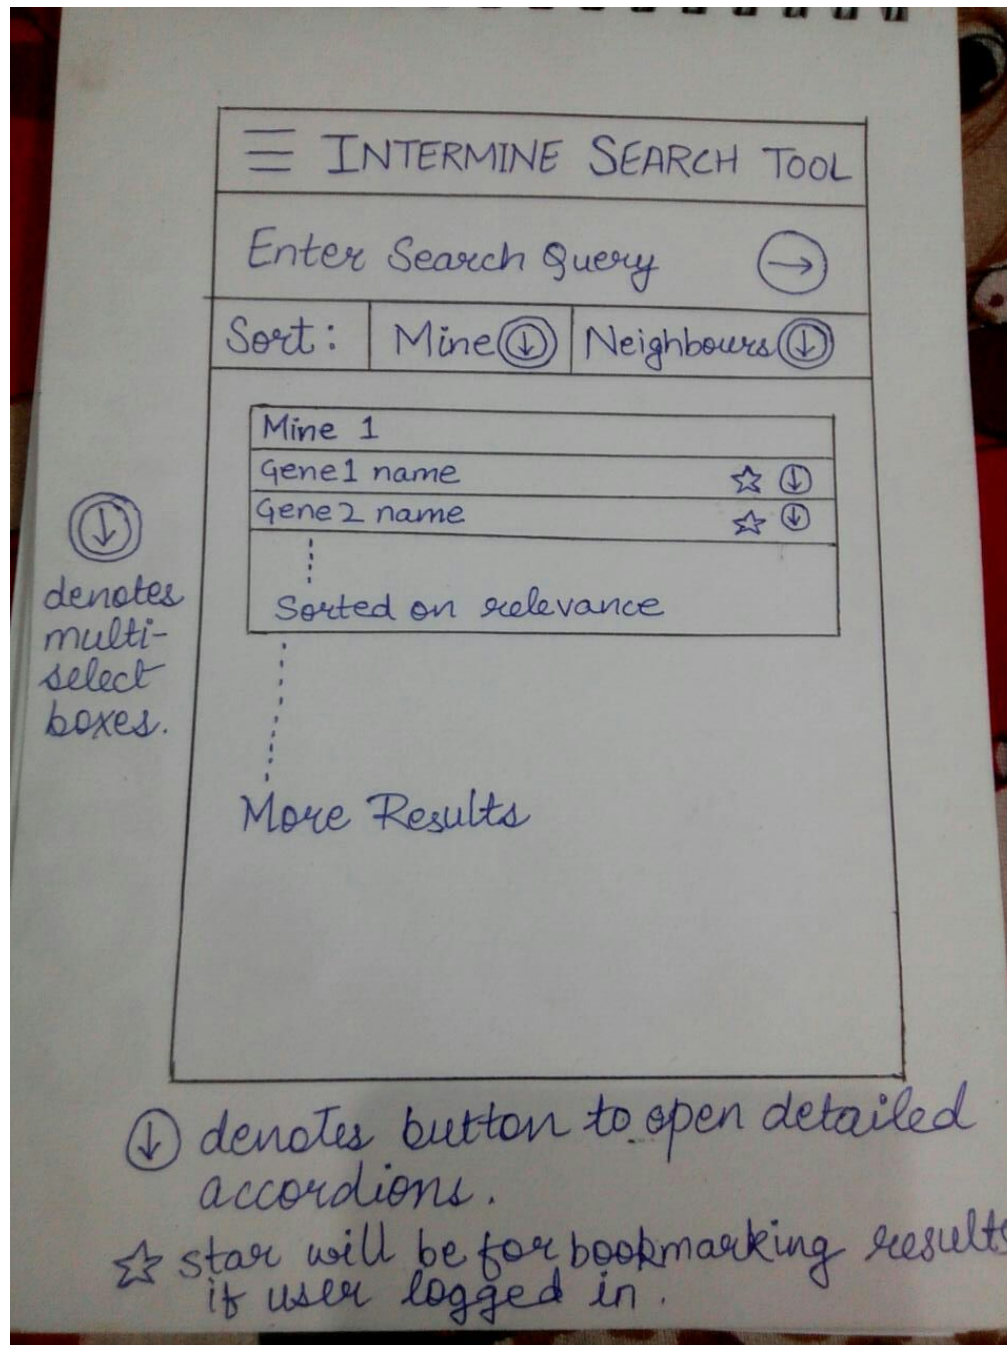 INTERMINE SEARCH TOOL
Enter Search Query
Sort: Mine Neighbours
Mine 1
Gene1 name
Gene2 name
Sorted on relevance
More Results
denotes
multi-
select
boxes.
denotes button to open detailed
accordions.
star will be for bookmarking results
if user logged in.